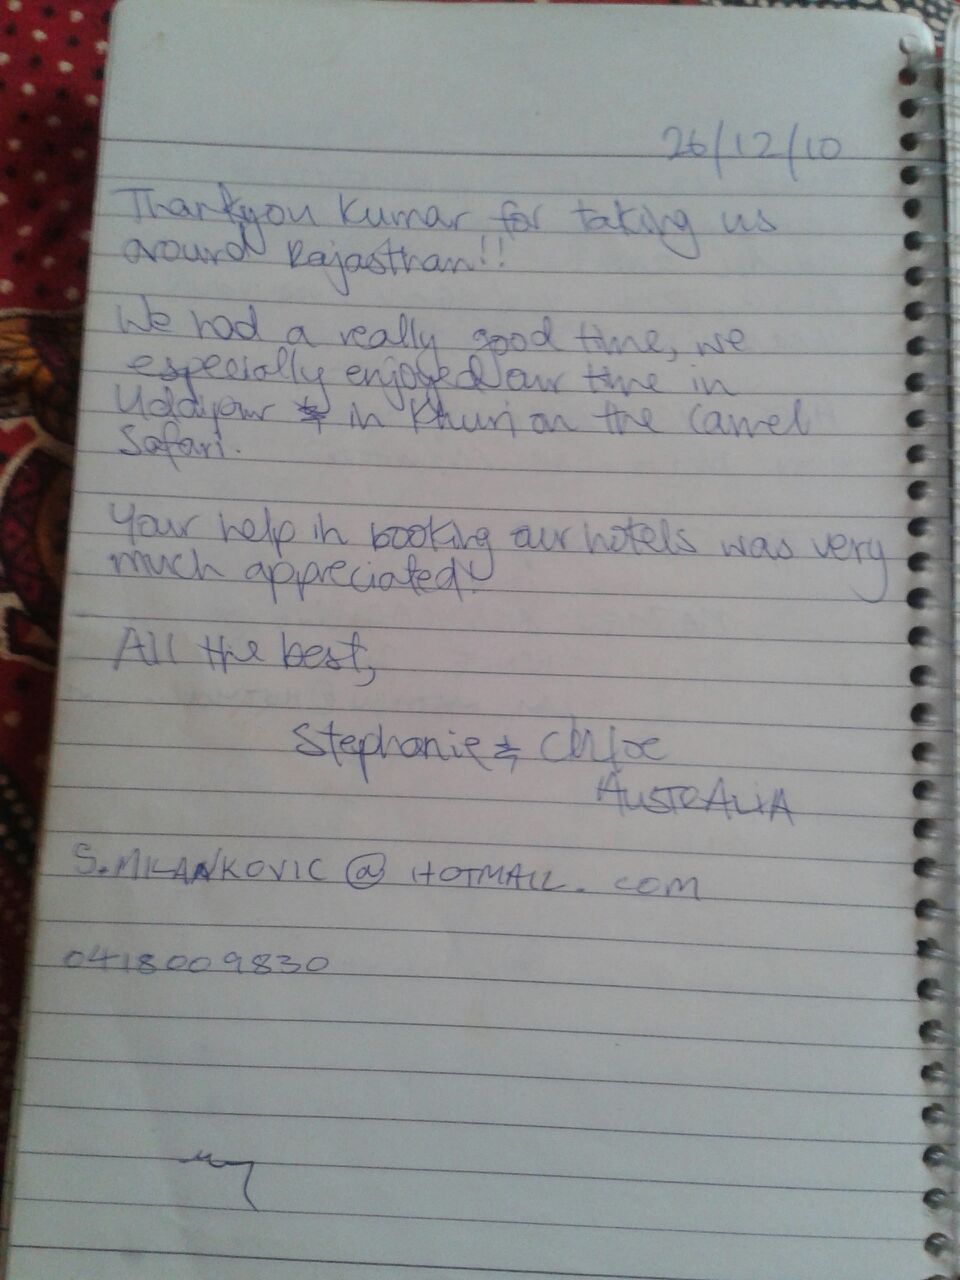 26/12/10
Thankyou Kumar for taking us
around Rajasthan!!
We had a really good time, we
especially enjoyed our time in
& in Khuri on the camel
safari.
Your help in booking our hotels was very
much appreciated
All the best,
Stephanie & Chloe
AUSTRALIA
S.MILANKOVIC @ HOTMAIL.COM
0418009830